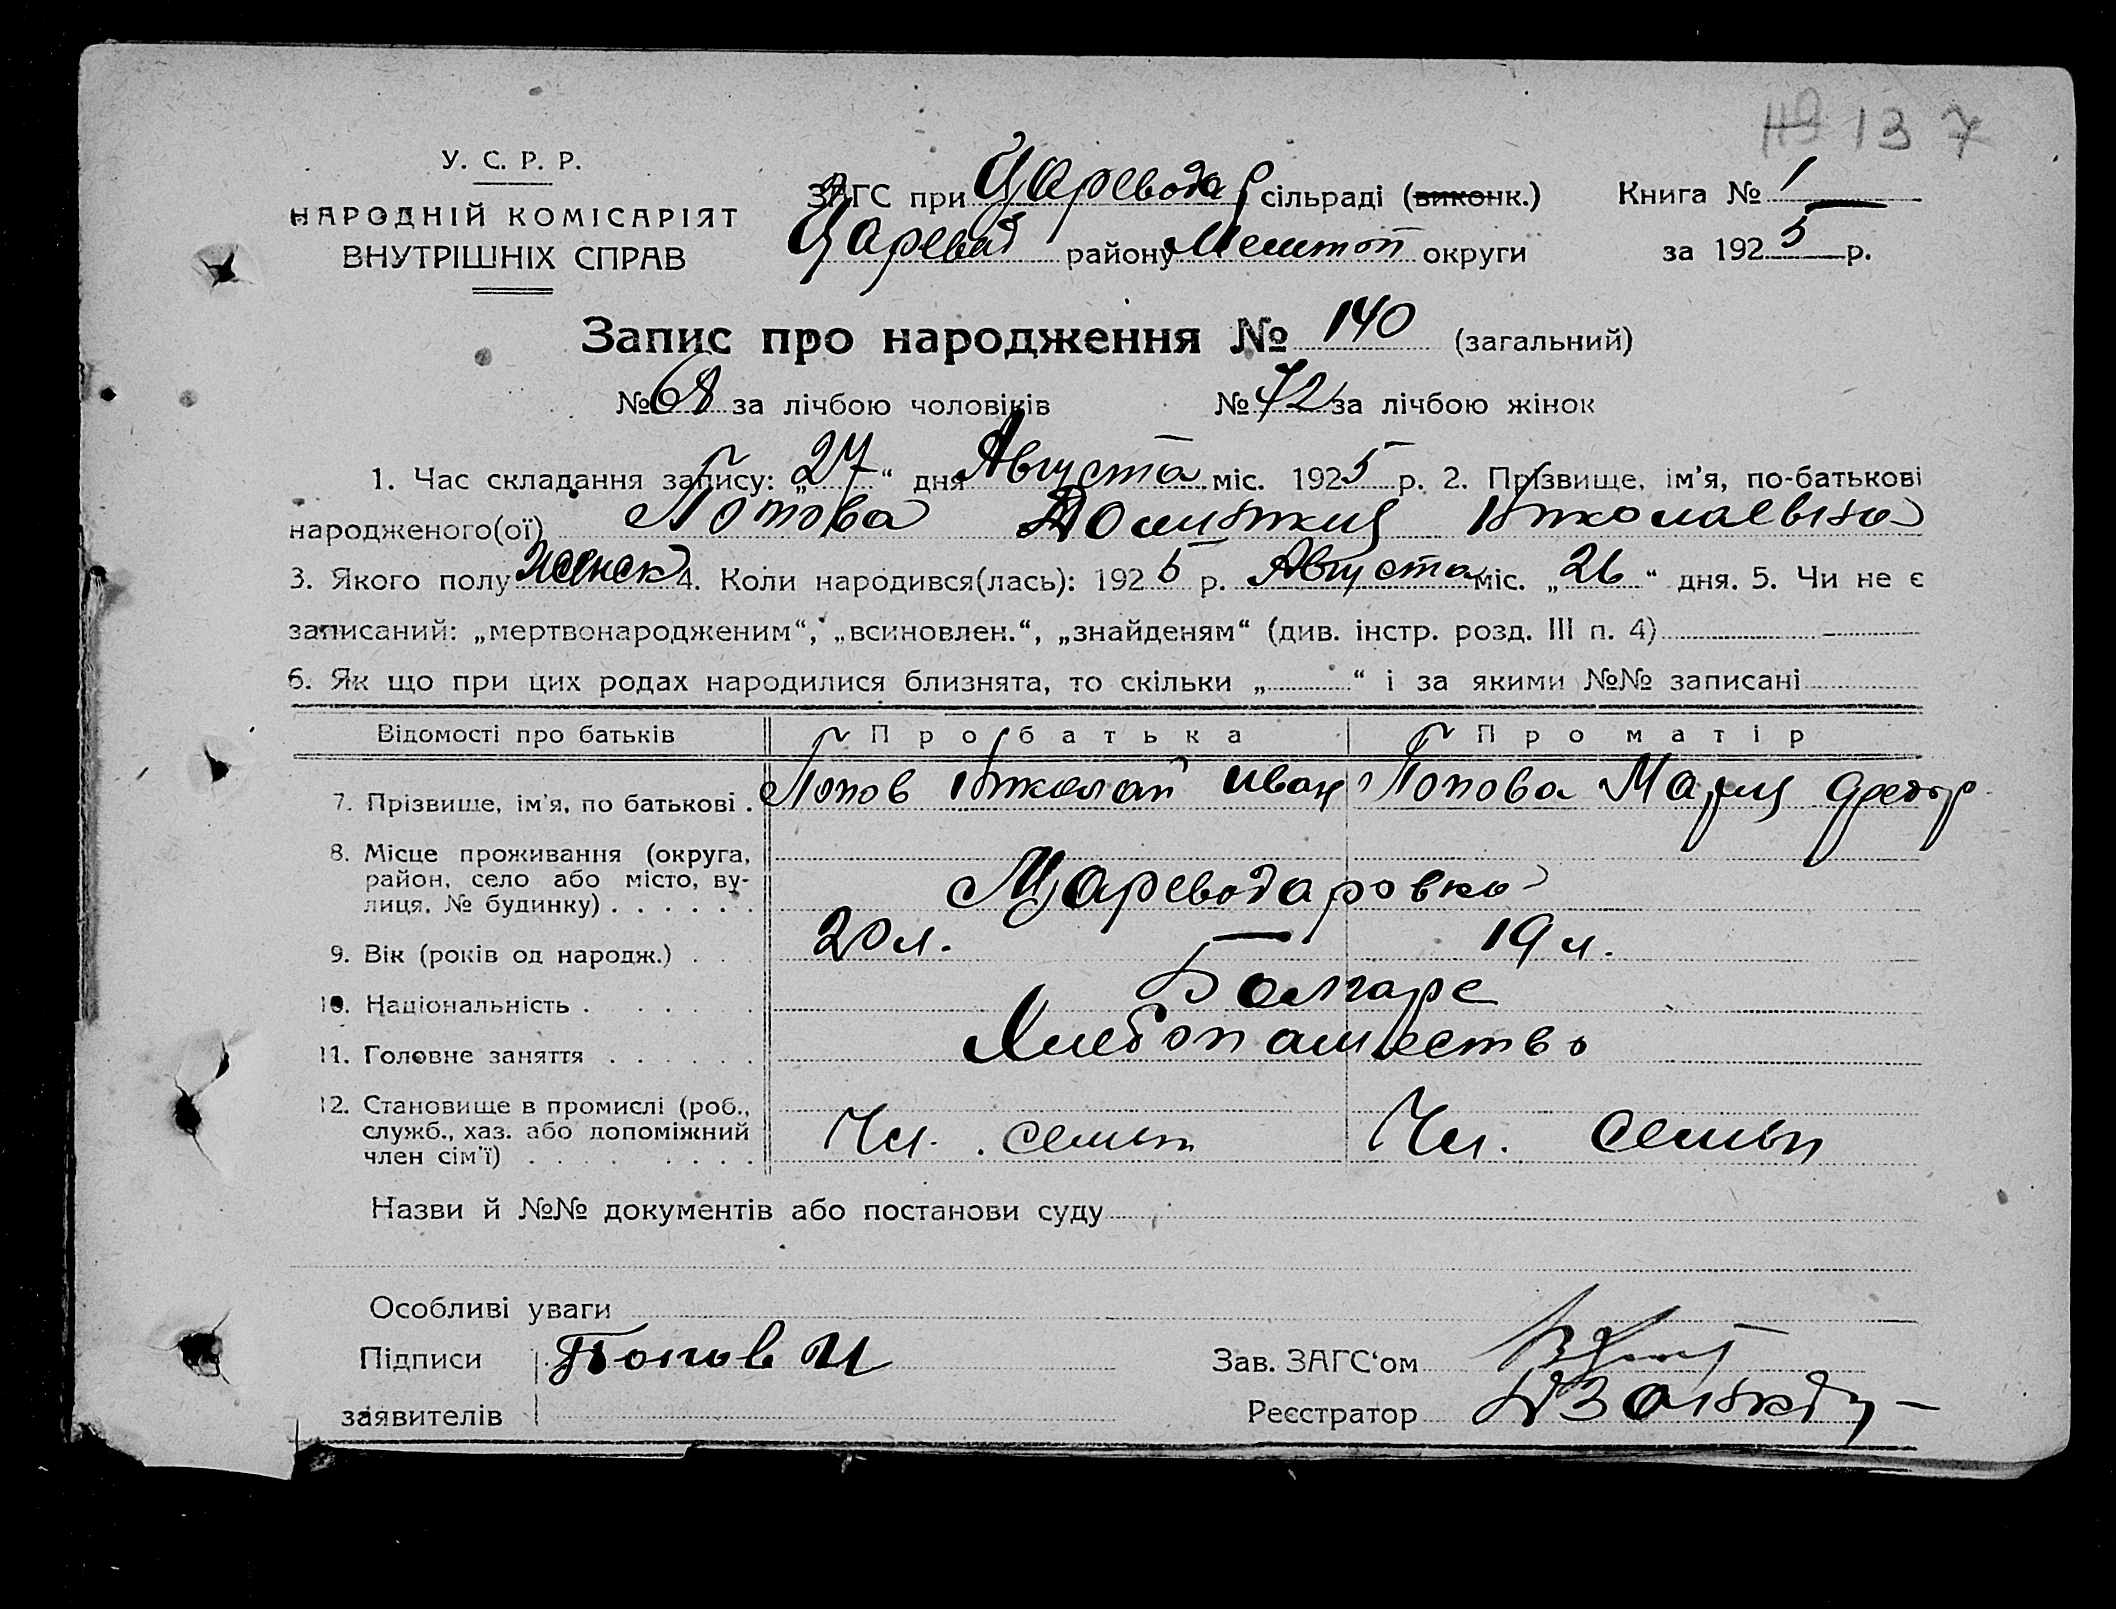 137
У. С. Р. Р.
НАРОДНІЙ КОМІСАРІЯТ
ВНУТРІШНІХ СПРАВ
ЗАГС при Царевода р сільраді (виконк.)
Книга № 1
Царевод району Мелитоп округи
за 1925 р.
Запис про народження № 140 (загальний)
№ 68 за лічбою чоловіків № 72 за лічбою жінок
1. Час складання запису: „27“ дня Августа міс. 1925 р. 2. Прізвище, ім'я, по-батькові
народженого(ої) Попова Николаевна
3. Якого полу женск 4. Коли народився(лась): 1925 р. Августа міс. „26“ дня. 5. Чи не є
записаний: „мертвонародженим“, „всиновлен.“, „знайденям“ (див. інстр. розд. III п. 4)
6. Як що при цих родах народилися близнята, то скільки „ “ і за якими №№ записані
Відомості про батьків Про батька Про матір
7. Прізвище, ім'я, по батькові . Попов Николай Иван Попова Мария Федор
8. Місце проживання (округа,
район, село або місто, ву-
лиця, № будинку) . . . . . . Цареводаровка
9. Вік (років од народж.) . . . 20 л. 19 л.
10. Національність . . . . . Болгаре
11. Головне заняття . . . . . . Хлебопашество
12. Становище в промислі (роб.,
служб., хаз. або допоміжний
член сім'ї) . . . . . . . . Чл. семьи Чл. семьи
Назви й №№ документів або постанови суду
Особливі уваги
Підписи Попов И
Зав. ЗАГС'ом
заявителів
Реєстратор